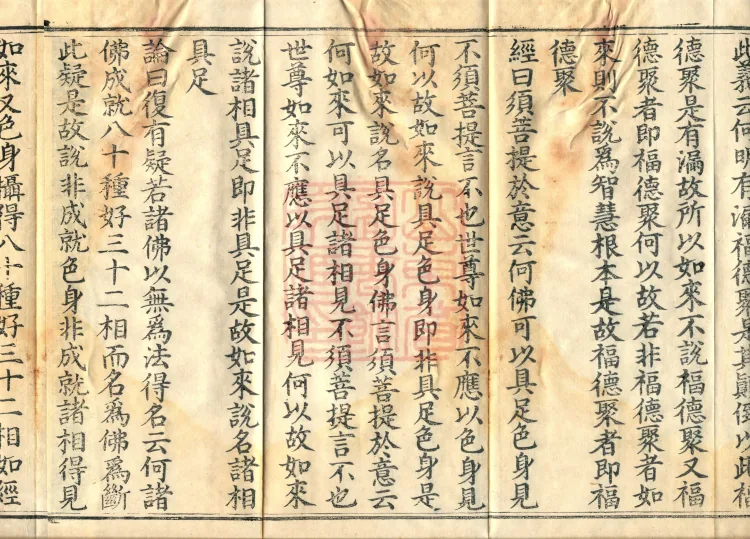 此義云何明有漏福德聚是其顛倒以此福
德聚是有漏故所以如來不說福德聚又福
德聚者即福德聚何以故若非福德聚者如
來則不說爲智慧根本是故福德聚者即福
德聚
經曰須菩提於意云何佛可以具足色身見
不須菩提言不也世尊如來不應以色身見
何以故如來說具足色身即非具足色身是
故如來說名具足色身佛言須菩提於意云
何如來可以具足諸相見不須菩提言不也
世尊如來不應以具足諸相見何以故如來
說諸相具足即非具足是故如來說名諸相
具足
論曰復有疑若諸佛以無爲法得名云何諸
佛成就八十種好三十二相而名爲佛爲斷
此疑是故說非成就色身非成就諸相得見
如來又色身攝得八十種好三十二相如經